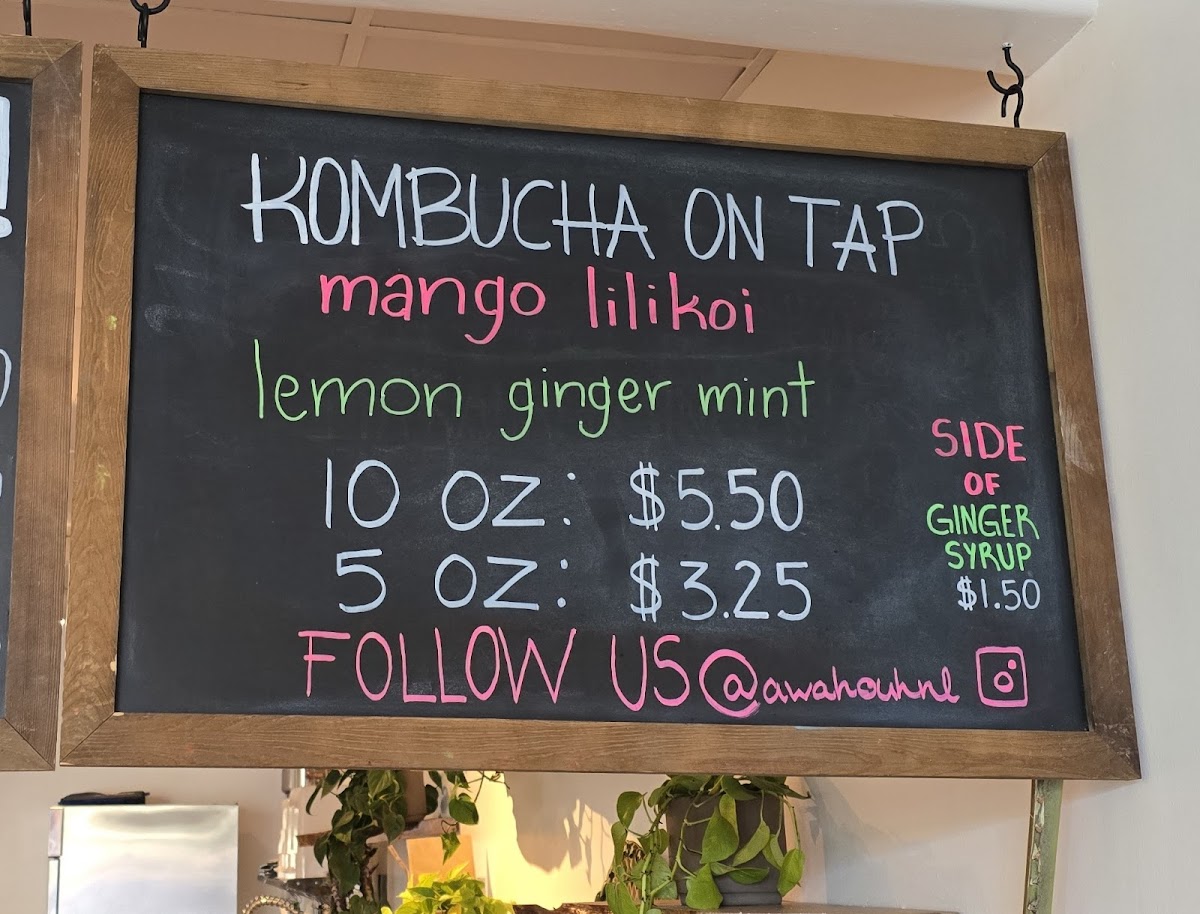 KOMBUCHA ON TAP
mango lilikoi
lemon ginger mint
10 oz: $5.50
5 oz: $3.25
FOLLOW US @awahouhnl
SIDE
OF
GINGER
SYRUP
$1.50